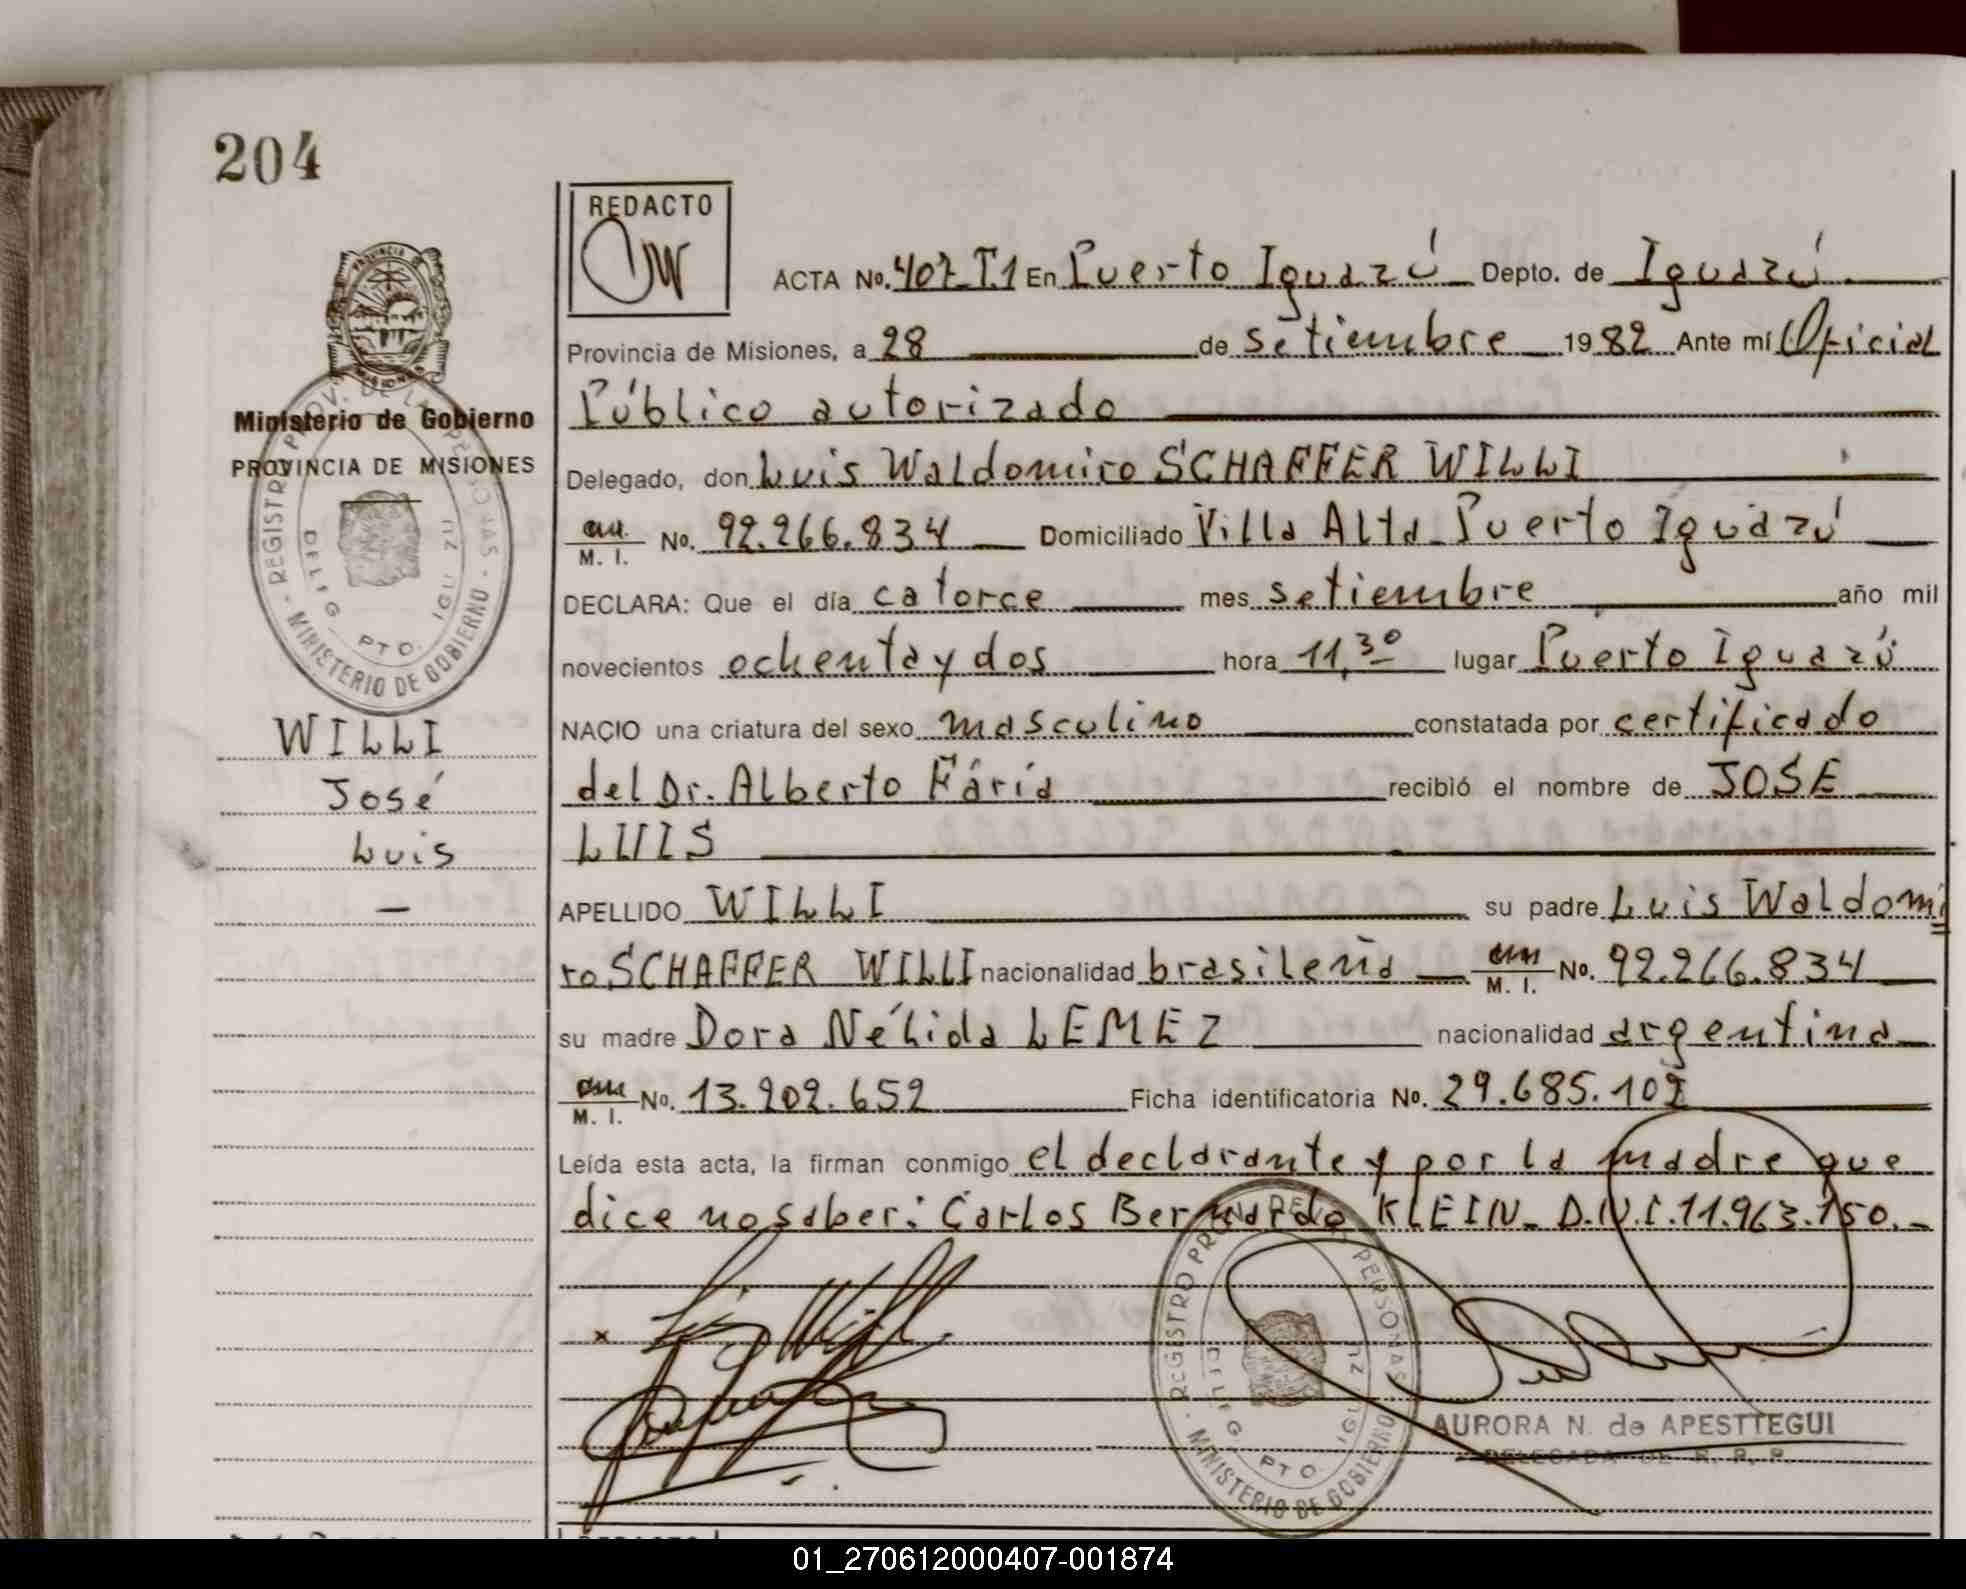 204
REDACTO
ACTA No. 407 T.1 En Puerto Iguazú Depto. de Iguazú
Provincia de Misiones, a 28 de setiembre 1982 Ante mí Oficial
Público autorizado
Ministerio de Gobierno
PROVINCIA DE MISIONES
Delegado, don Luis Waldomiro SCHAFFER WILLI
M. I. No. 92.266.834 Domiciliado Villa Alta - Puerto Iguazú
DECLARA: Que el día catorce mes setiembre año mil
novecientos ochenta y dos hora 11,30 lugar Puerto Iguazú
NACIO una criatura del sexo masculino constatada por certificado
del Dr. Alberto Faría recibió el nombre de JOSE
LUIS
WILLI
José
Luis
—
APELLIDO WILLI su padre Luis Waldomi
ro SCHAFFER WILLI nacionalidad brasileña M. I. No. 92.266.834
su madre Dora Nélida LEMEZ nacionalidad argentina
M. I. No. 13.202.652 Ficha identificatoria No. 29.685.102
Leída esta acta, la firman conmigo el declarante y por la madre que
dice no saber: Carlos Bernardo KLEIN - D.N.I. 11.963.150. -
REGISTRO PROV. DE LAS PERSONAS - MINISTERIO DE GOBIERNO
DELEG. PTO. IGUAZU
REGISTRO PROV. DE LAS PERSONAS - MINISTERIO DE GOBIERNO
DELEG. PTO. IGUAZU
AURORA N. de APESTTEGUI
DELEGADA DE R. P. P.
REDACTO
01_270612000407-001874